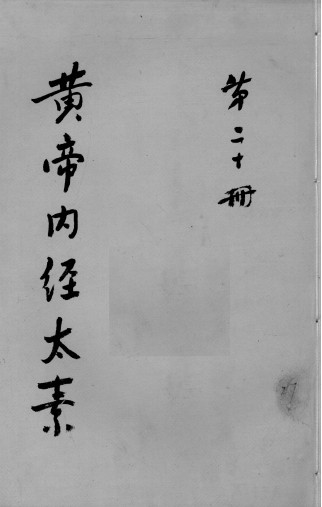 第二十冊
黄帝内经太素